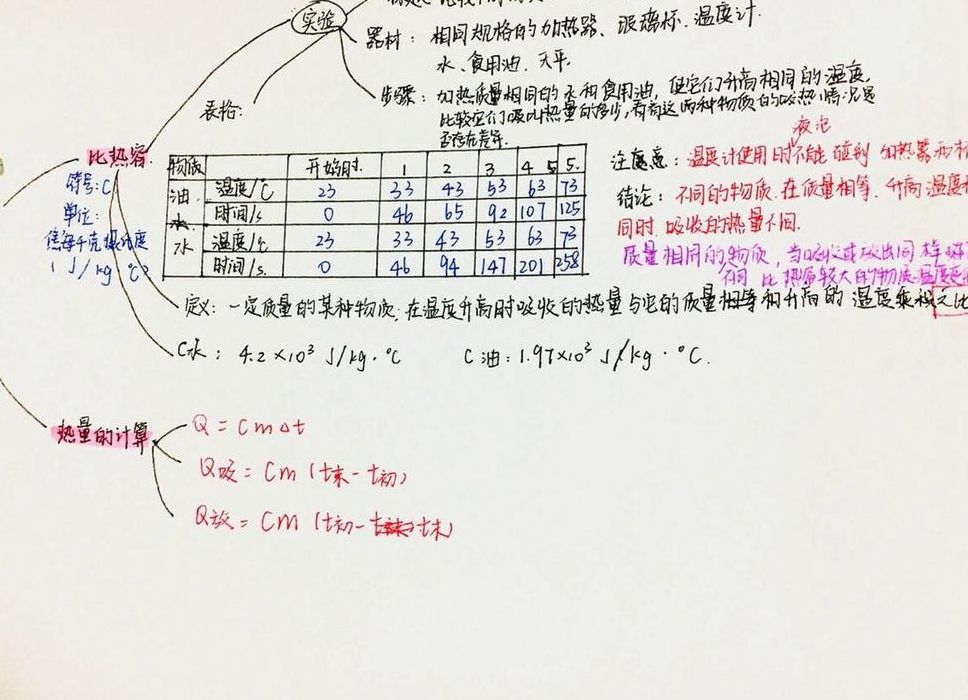 实验
器材：相同规格的加热器、玻璃杯、温度计.
水、食用油、天平.
步骤：加热质量相同的水和食用油，使它们升高相同的温度，
比较它们吸收热量的多少，看看这两种物质的吸热情况是
否存在差异.
表格：
比热容.
符号：C
单位：
焦每千克摄氏度
1 J/kg ℃
物质 开始时. 1 2 3 4 5 5.
油 温度/℃ 23 33 43 53 63 73
时间/s 0 46 65 92 107 125
水 温度/℃ 23 33 43 53 63 73
水 时间/s. 0 46 94 147 201 258
液泡
注意：温度计使用时不能碰到加热器和杯
结论：不同的物质.在质量相等、升高温度
同时.吸收的热量不同.
质量相同的物质，当吸收或放出同样
不同 比热容较大的物质温度
定义：一定质量的某种物质，在温度升高时吸收的热量与它的质量和升高的温度乘积之比
C水：4.2×10³ J/kg·℃ C油：1.97×10³ J/kg·℃.
热量的计算
Q = cmΔt
Q吸 = Cm（t末-t初）
Q放 = Cm（t初-t末）